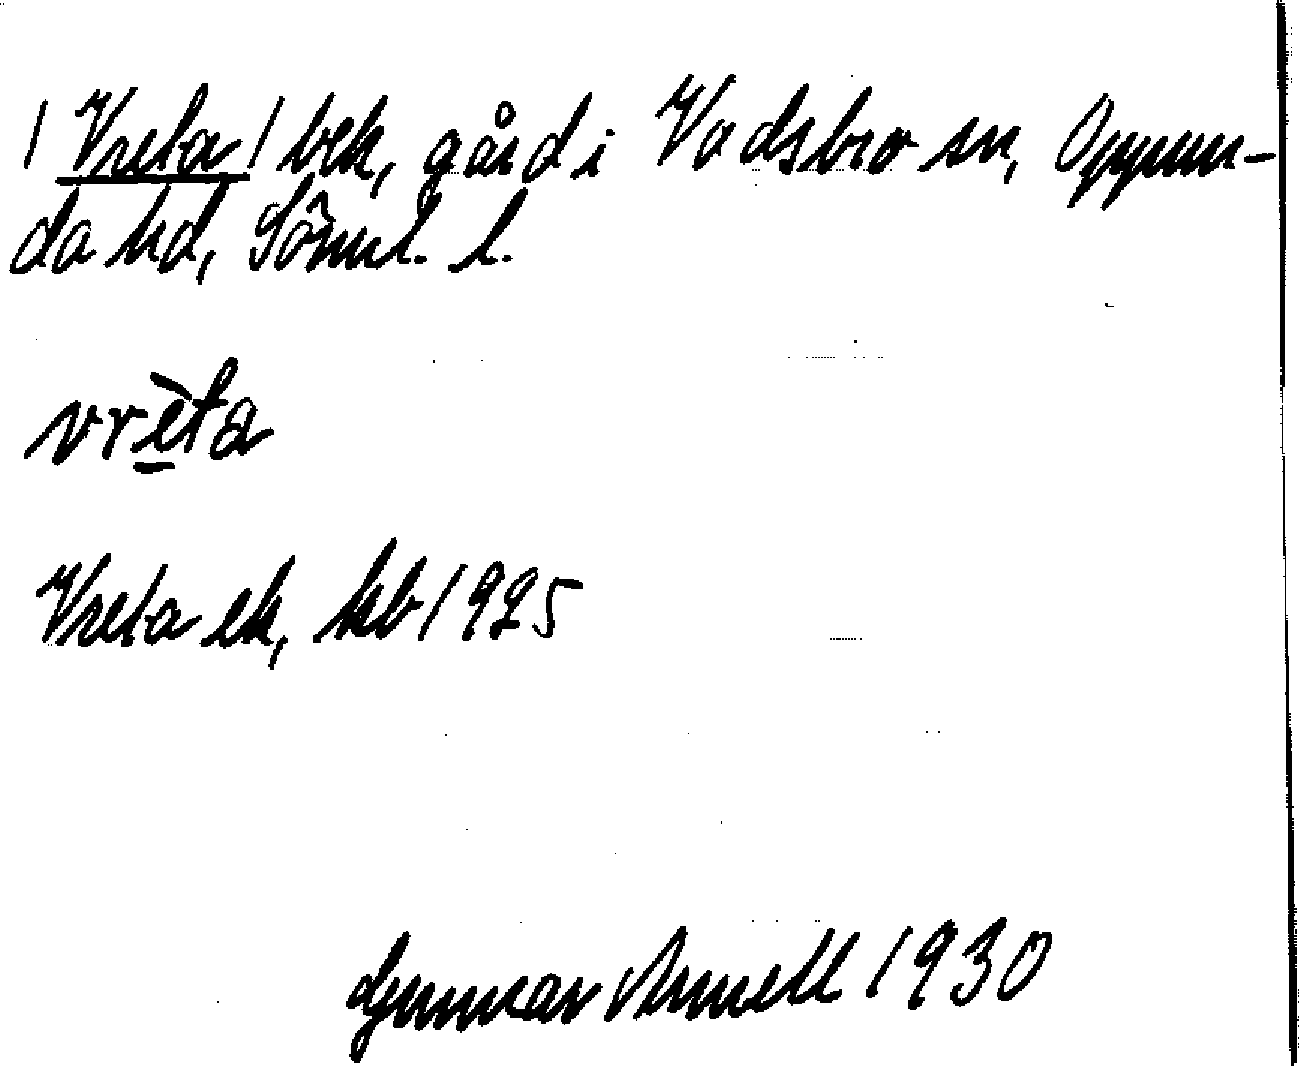 / Vreta / bek, gård i Vadsbro sn, Oppun-
da hd, Söml. l.
vrèta
Vreta ek, kb 1925
Gunnar Arnell 1930